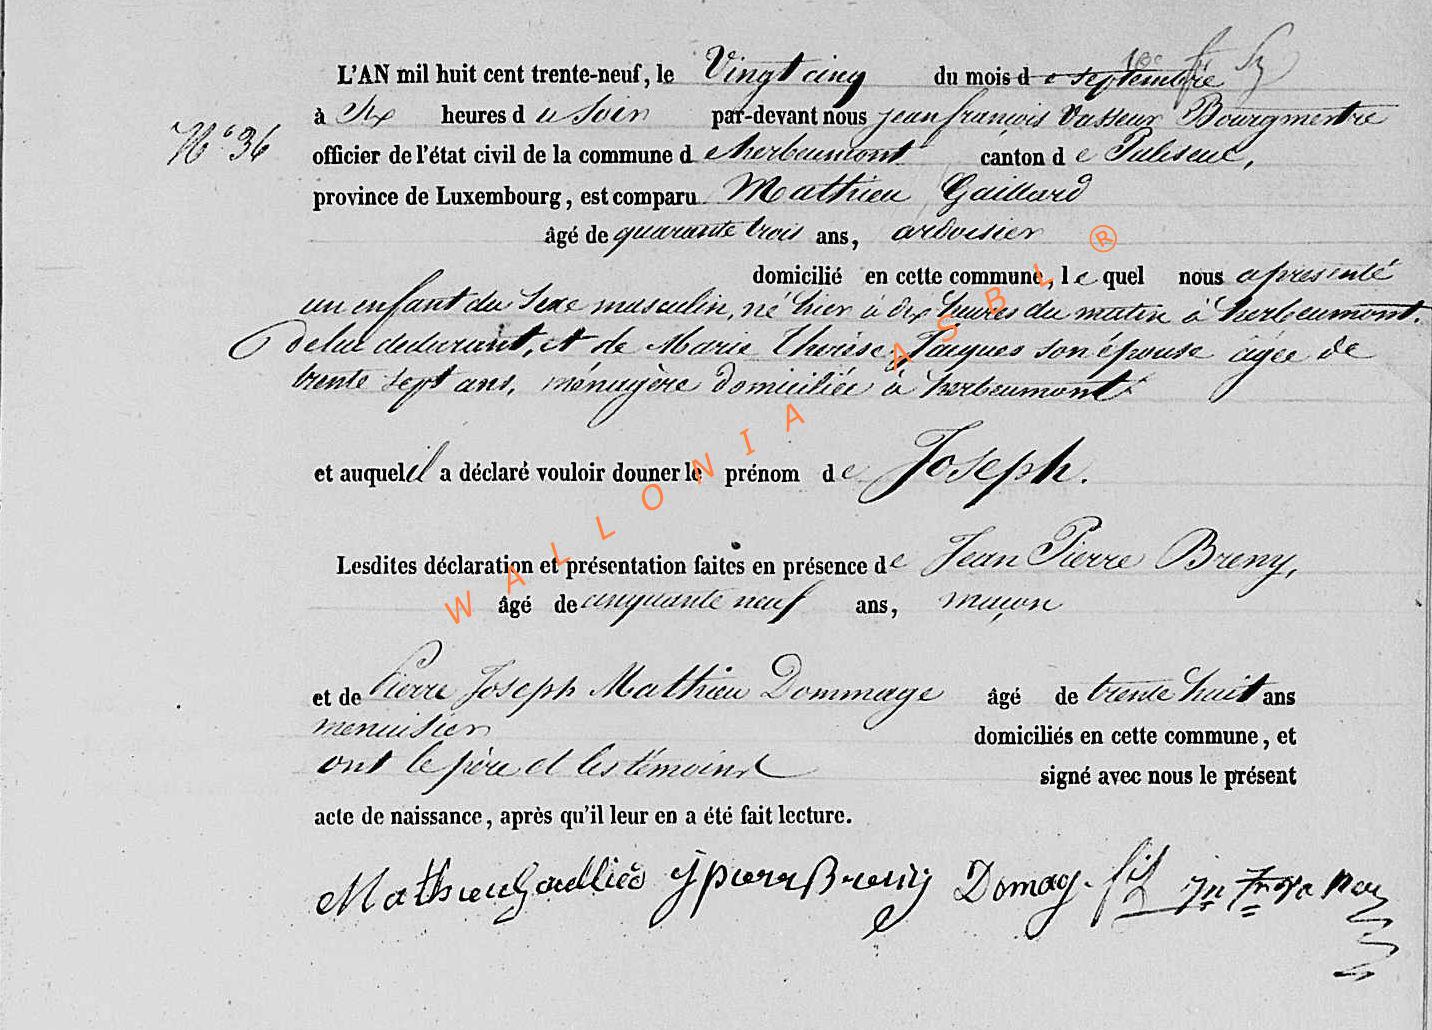 L'AN mil huit cent trente-neuf, le Vingt cinq du mois de septembre
à Six heures du Soir par-devant nous jean françois Vasseur Bourgmestre
N° 36
officier de l'état civil de la commune de herbeumont canton de Paliseul,
province de Luxembourg, est comparu Mathieu Gaillard
âgé de quarante trois ans, ardoisier
domicilié en cette commune, lequel nous a présenté
un enfant du Sexe masculin, né hier à dix heures du matin à herbeumont.
de lui déclarant, et de Marie Thérèse Jacques son épouse âgée de
trente sept ans, ménagère domiciliée à herbeumont
et auquel il a déclaré vouloir donner le prénom de Joseph.
Lesdites déclaration et présentation faites en présence de Jean Pierre Breny,
âgé de cinquante neuf ans, maçon
et de Pierre Joseph Mathieu Dommage âgé de trente huit ans
menuisier domiciliés en cette commune, et
ont le père et les témoins signé avec nous le présent
acte de naissance, après qu'il leur en a été fait lecture.
Mathieu Gaulliéd jpierr Breny Domag. fil
WALLONIA ASBL ®